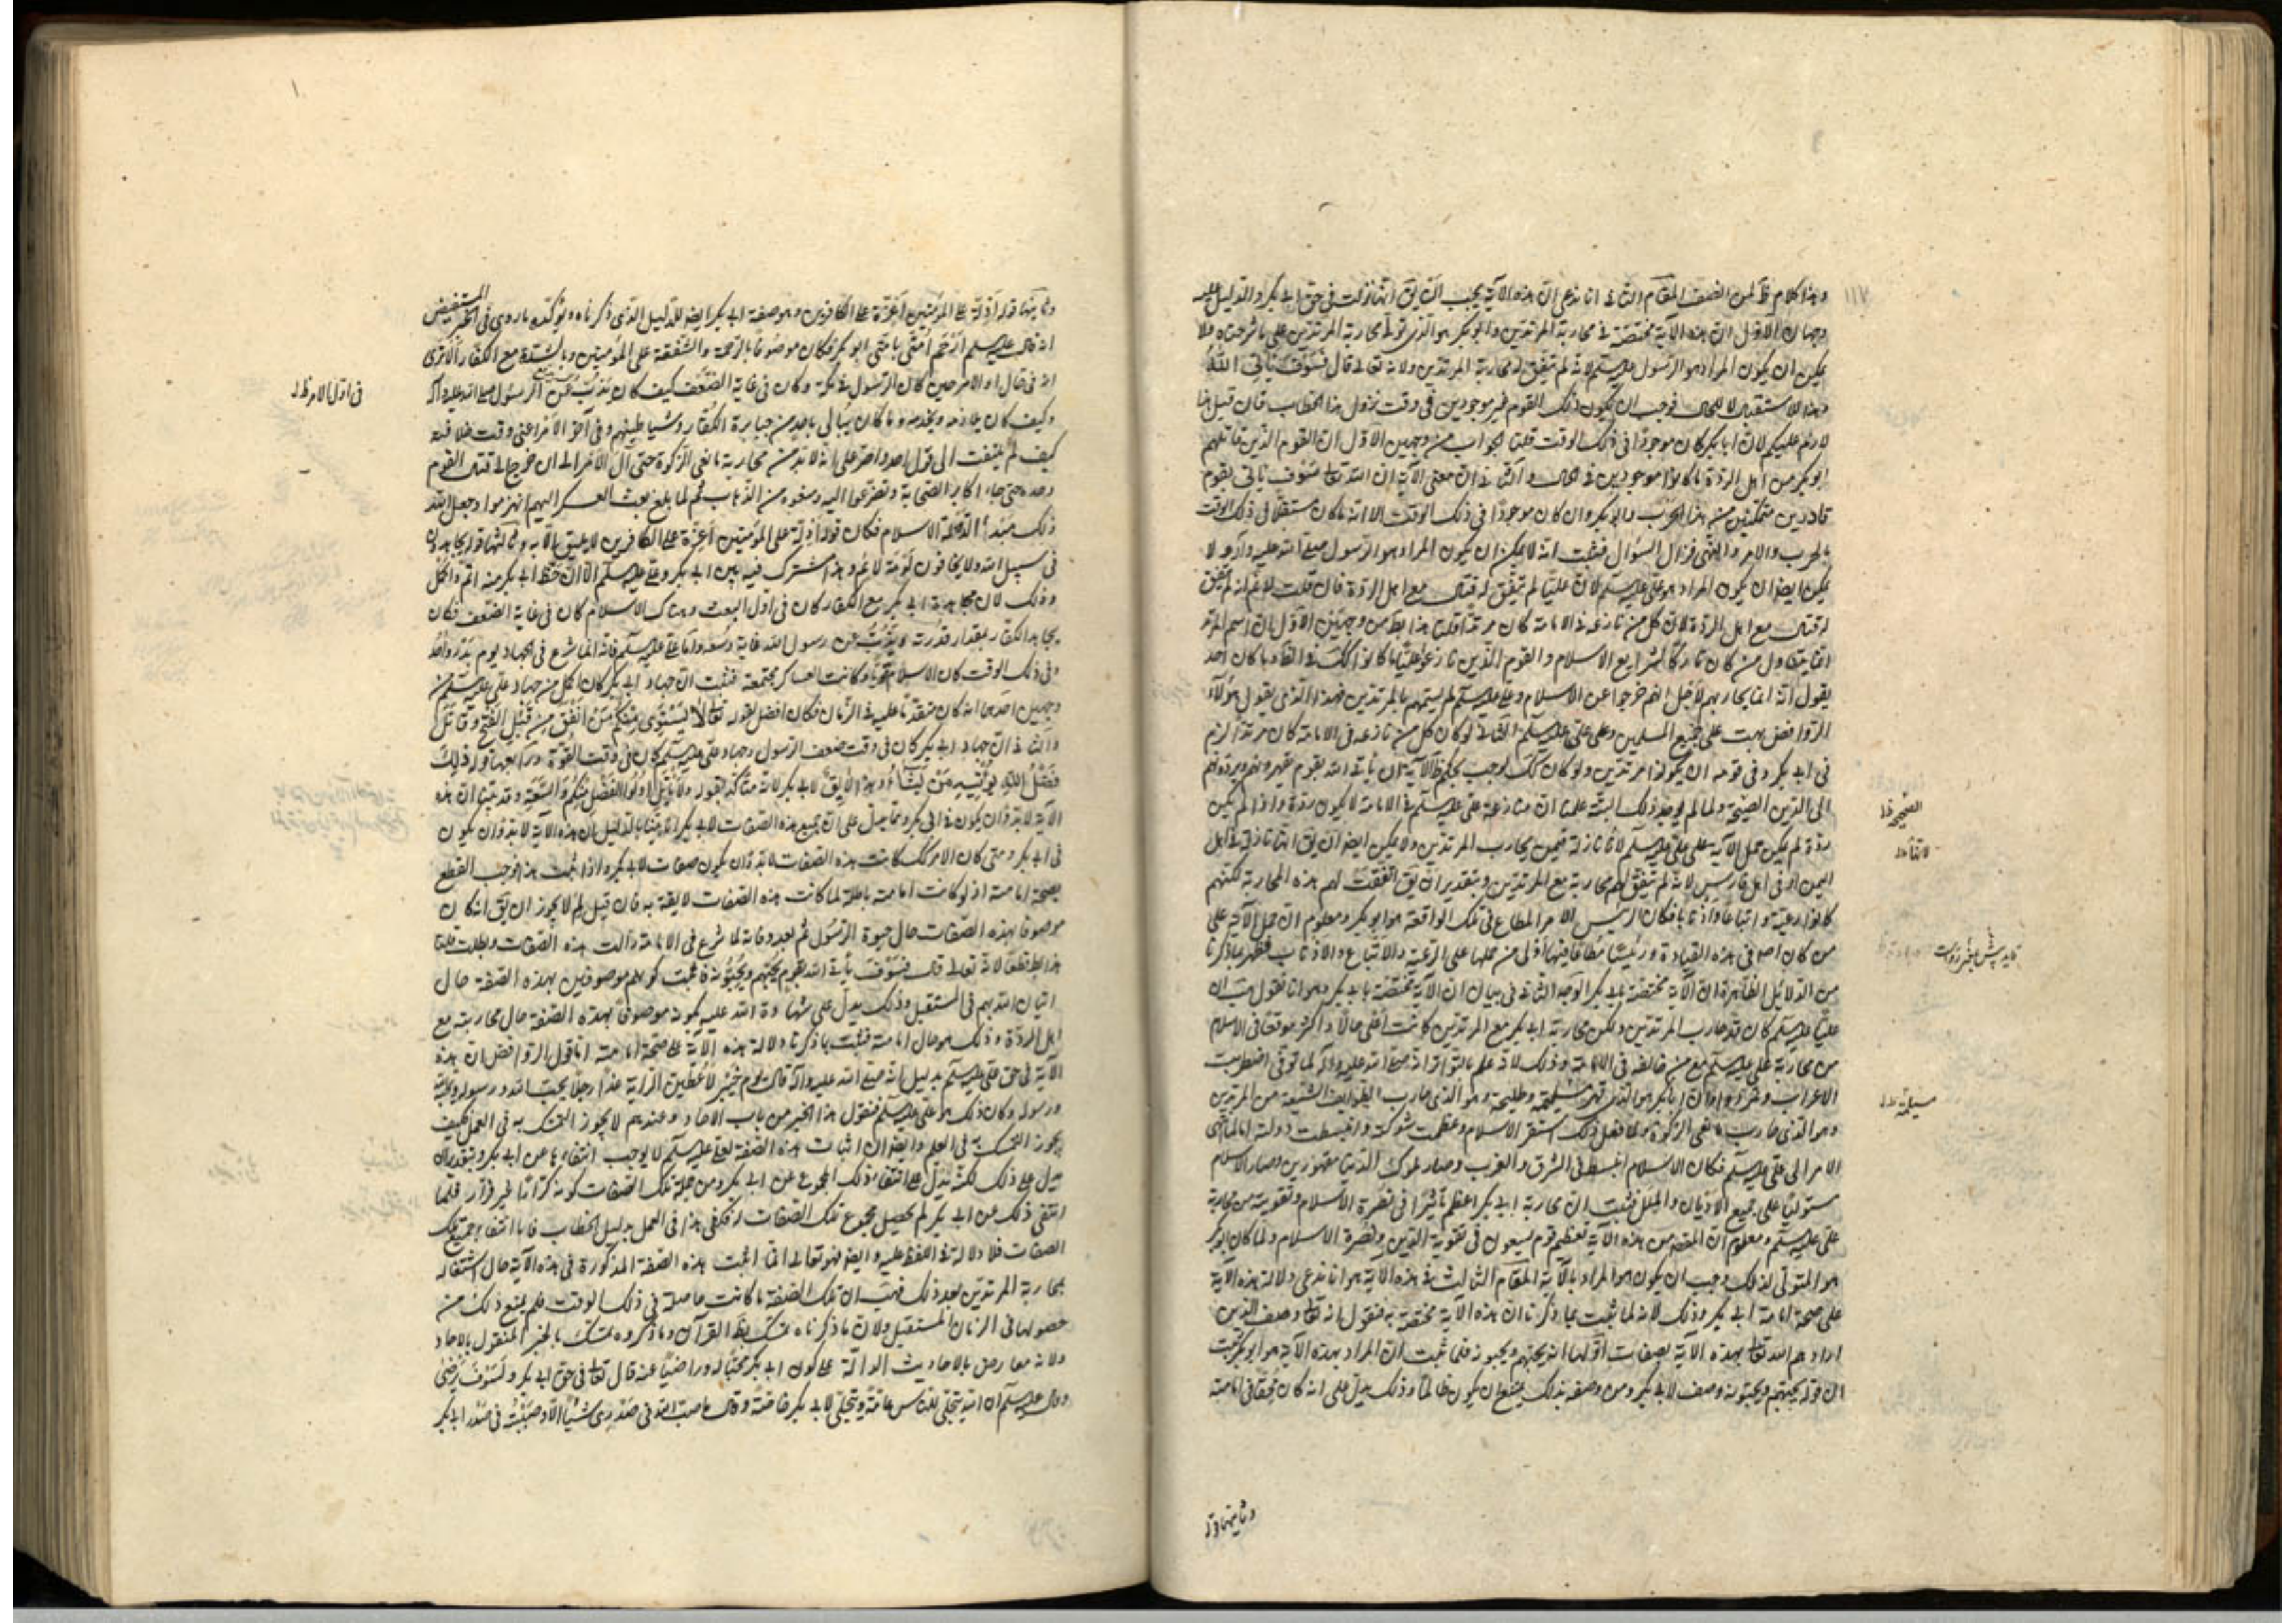 ١١٧
وهذا كلام ظ لمن انصف المقام الثانى انا ندعى ان هذه الآية يجب ان يق انها نزلت فى حق ابى بكر والدليل عليه
وجهان الاول ان هذه الآية مختصة فى محاربة المرتدين وابو بكر هو الذى تولى محاربة المرتدين على ما شرحناه ولا
يمكن ان يكون المراد هو الرسول عليه السلم لانه لم يتفق له محاربة المرتدين ولانه تعالى قال فَسَوْفَ يَأتِى اللهُ
وهذا للاستقبال لا للحال فوجب ان يكون ذلك القوم غير موجودين فى وقت نزول هذا الخطاب فان قيل هذا
لازم عليكم لان ابا بكر كان موجودًا فى ذلك الوقت قلنا الجواب من وجهين الاول ان القوم الذين قاتلهم
ابو بكر من اهل الردة ما كانوا موجودين فى الحال والثانى ان معنى الآية ان الله تعالى سوف ياتى بقوم
قادرين متمكنين من هذا الحرب وابو بكر وان كان موجودًا فى ذلك الوقت الا انه ما كان مستقلا فى ذلك الوقت
بالحرب والامر والنهى فزال السؤال فثبت انه لا يمكن ان يكون المراد هو الرسول صلى الله عليه وآله ولا
يمكن ايضا ان يكون المراد هو على عليه السلم لان عليًّا لم يتفق له قتال مع اهل الردة فان قلت لا نم انه لم يتفق
له قتال مع اهل الردة لان كل من نازعه فى الامامة كان مرتدًا قلنا هذا بط من وجهين الاول ان اسم المرتد
انما يتناول من كان تاركًا لشرايع الاسلام والقوم الذين نازعوا عليًّا ما كانوا كك فى الظ وما كان احد
يقول انه انما يحاربهم لاجل انهم خرجوا عن الاسلام وعلى عليه السلم لم يسمهم بالمرتدين فهذا الذى يقول هؤلاء
الروافض بهت على جميع المسلمين وعلى على عليه السلم الثانى لو كان كل من نازعه فى الامامة كان مرتدًا لزم
فى ابى بكر وفى قومه ان يكونوا مرتدين ولو كان كك لوجب بحكم ظ الآية ان يأتى الله بقوم يقهرونهم ويردونهم
الى الدين الصحيحة ولما لم يوجد ذلك البتة علمنا ان منازعة على عليه السلم فى الامامة لا يكون ردة واذا لم يكن
الصحيح ظ
ردة لم يكن حمل الآية على على عليه السلم لانا نازلة فيمن يحارب المرتدين ولا يمكن ايضا ان يق انها نازلة فى اهل
لانها ظ
اليمن او فى اهل فارس لانه لم يتفق لهم محاربة مع المرتدين وبتقدير ان يق اتفقت لهم هذه المحاربة لكنهم
كانوا رعية واتباعًا واذنابا فكان الرئيس الآمر المطاع فى تلك الواقعة هو ابو بكر ومعلوم ان حمل الآية على
من كان اصلا فى هذه القيادة ورئيسًا مطاعًا فيها أولى من حملها على الرعية والاتباع والاذناب فظهر بما ذكرنا
من الدلائل الظاهرة ان الآية مختصة بابى بكر الوجه الثانى فى بيان ان الآية مختصة بابى بكر وهو انا نقول هب ان
عليًا عليه السلم كان قد حارب المرتدين ولكن محاربة ابى بكر مع المرتدين كانت أعلى حالًا واكثر موقعًا فى الاسلام
من محاربة على عليه السلم مع من خالفه فى الامامة وذلك لانه علم بالتواتر انه صلى الله عليه وآله لما توفى اضطربت
الاعراب وتمردوا وان ابا بكر هو الذى قهر مسيلمة وطليحة وهو الذى حارب الطوايف الشنيعة من المرتدين
مسيلمة ظ
وهو الذى حارب مانعى الزكوة ولما فعل ذلك استقر الاسلام وعظمت شوكته وانبسطت دولته امالما انتهى
الامر الى على عليه السلم فكان الاسلام انبسط فى الشرق والغرب وصار ملوك الدنيا مقهورين وصار الاسلام
مستوليًا على جميع الاديان والملل فثبت ان محاربة ابى بكر اعظم تأثيرًا فى نصرة الاسلام وتقويته من محاربة
على عليه السلم ومعلوم ان المقصد من هذه الآية تعظيم قوم يسعون فى تقوية الدين ونصرة الاسلام ولما كان ابو بكر
هو المتولى لذلك وجب ان يكون هو المراد بالآية المقام الثالث فى هذه الآية هو انا ندعى دلالة هذه الآية
على صحة امامة ابى بكر وذلك لانه لما ثبت بما ذكرنا ان هذه الآية مختصة به فنقول انه تعالى وصف الذين
ارادهم الله تعالى بهذه الآية بصفات اولها انه يحبهم ويحبونه فلما ثبت ان المراد بهذه الآية هو ابو بكر ثبت
ان قوله يحبهم ويحبونه وصف لابى بكر ومن وصفه بذلك يمتنع ان يكون ظالمًا وذلك يدل على انه كان محقًا فى امامته
وثانيتها قوله
وثانيتها قوله أَذِلَّة على المؤمنين أعِزَّة على الكافرين وهو صفة ابى بكر ايضا للدليل الذى ذكرناه ويؤكده ما روى فى الخبر المستفيض
انه قال عليه السلم ارحم أمتى بامتى ابو بكر فكان موصوفا بالرحمة والشفقة على المؤمنين وبالشدة مع الكفار ألا ترى
ان فى قتال او الامر حين كان الرسول فى مكة وكان فى غاية الضعف كيف كان يذب عن الرسول صلى الله عليه وآله
فى اول الامر ظ
وكيف كان يلازمه ويخدمه وما كان يبالى باحد من جبابرة الكفار وشياطينهم وفى آخر الامر اعنى وقت خلافته
كيف لم يلتفت الى قول احد واصر على انه لا بد من محاربة مانعى الزكوة حتى آل الأمر الى ان خرج الى قتال القوم
وحده حتى جاء اكابر الصحابة وتضرعوا اليه ومنعوه من الذهاب ثم لما بلغ بعث العسكر اليهم انهزموا وجعل الله
ذلك مبدأ لدولة الاسلام فكان قوله أذِلة على المؤمنين أعزة على الكافرين لا يليق الا به وثالثها قوله يجاهدون
فى سبيل الله ولا يخافون لَوْمَة لائم وهذا مشترك فيه بين ابى بكر وعلى عليه السلم الا ان حظ ابى بكر منه اتم واكمل
وذلك لان مجاهدة ابى بكر مع الكفار كان فى أول البعث وهناك الاسلام كان فى غاية الضعف فكان
يجاهد الكفار بمقدار قدرته ويذب عن رسول الله غاية وسعه واما على عليه السلم فانه انما شرع فى الجهاد يوم بدر وأُحُد
وفى ذلك الوقت كان الاسلام قويًا وكانت العساكر مجتمعة فثبت ان جهاد ابى بكر كان اكمل من جهاد على عليه السلم من
وجهين احدها انه كان متقدمًا عليه فى الزمان فكان افضل لقوله تعالى لا يَسْتَوِى مِنْكُمْ مَنْ انْفَقَ مِن قَبْلِ الفَتْحِ وَقَاتَلَ
والثانى ان جهاد ابى بكر كان فى وقت ضعف الرسول وجهاد على عليه السلم كان فى وقت القوة ورابعها قوله ذلِكَ
فَضْلُ اللهِ يُؤتِيهِ مَنْ يَشَاءُ وهذا لائق لابى بكر لانه متأكد بقوله ولا يَأتَلِ أولُوا الفَضْلِ مِنكُم والسَّعَةِ وقد بينا ان هذه
الآية لا بد وان يكون فى ابى بكر ومما يدل على ان جميع هذه الصفات لابى بكر انا بينا بالدليل ان هذه الآية لا بد وان يكون
فى ابى بكر ومتى كان الامر كك كانت هذه الصفات لا بد وان يكون صفات لابى بكر واذا ثبت هذا فوجب القطع
بصحة امامته اذ لو كانت امامته باطلة لما كانت هذه الصفات لايقة به فان قيل لم لا يجوز ان يق انه كان
موصوفا بهذه الصفات حال حيوة الرسول ثم بعد وفاته لما شرع فى الامامة زالت هذه الصفات وبطلت قلنا
هذا بط قطعًا لانه تعالى قال فسَوْفَ يأتى الله بقوم يحبهم ويحبونه فاثبت كونهم موصوفين بهذه الصفة حال
اتيان الله بهم فى المستقبل وذلك يدل على شهادة الله عليه بكونه موصوفًا بهذه الصفة حال محاربته مع
اهل الردة وذلك هو حال امامته فثبت بما ذكرنا دلالة هذه الآية على صحة امامته اما قول الروافض ان هذه
الآية فى حق على عليه السلم بدليل انه صلى الله عليه وآله قال يوم خيبر لأعْطين الراية غدا رجلًا يحب الله ورسوله ويحبه الله
ورسوله وكان ذلك هو على عليه السلم فنقول هذا الخبر من باب الآحاد وعندهم لا يجوز التمسك به فى العمل فكيف
يجوز التمسك به فى العلم وايضا ان اثبات هذه الصفة لعلى عليه السلم لا يوجب انتفاءها عن ابى بكر وبتقدير ان
يدل على ذلك لكنه لا يدل على انتفاء ذلك المجموع عن ابى بكر ومن جملة تلك الصفات كونه كرارًا غير فرار فلما
انتفى ذلك عن ابى بكر لم يحصل مجموع تلك الصفات له فكفى هذا فى العمل بدليل الخطاب فاما انتفاء جميع تلك
الصفات فلا دلالة فى اللفظ عليه وايضا فهو تعالى انما اثبت هذه الصفة المذكورة فى هذه الآية حال اشتغاله
بمحاربة المرتدين بعد ذلك فهب ان تلك الصفة ما كانت حاصلة فى ذلك الوقت فلم يمنع ذلك من
حصولها فى الزمان المستقبل ولان ما ذكرناه تمسك بظ القرآن وما ذكروه تمسك بالخبر المنقول بالآحاد
ولانه معارض بالاحاديث الدالة على كون ابى بكر محبًا له وراضيًا عنه قال تعالى فى حق ابى بكر ولسَوْفَ يَرْضى
وقال عليه السلم ان الله يتجلى للناس عامة ويتجلى لابى بكر خاصة وقال ما صب الله فى صَدْرِى شيئًا الا وصبَبْتُه فى صدر ابى بكر